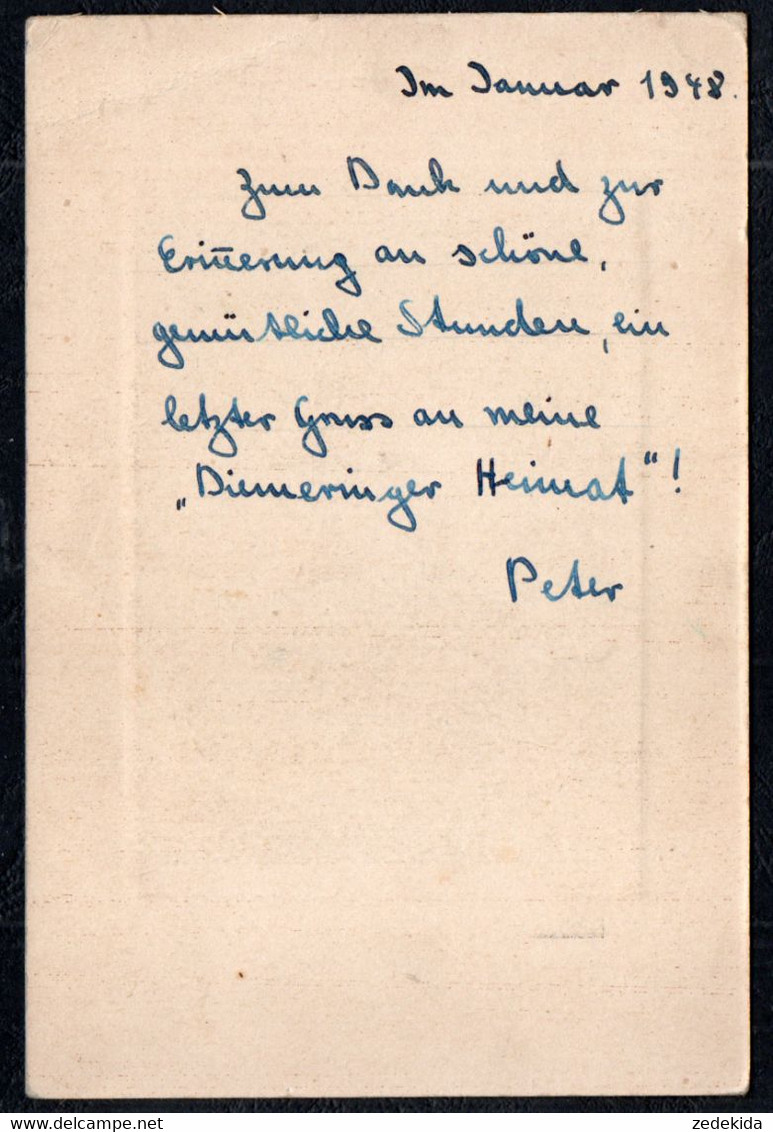 Im Januar 1948.
Zum Dank und zur
Erin̄erung an schöne,
gemütliche Stunden, ein
letzter Gruss an meine
„Diemeringer Heimat"!
Peter
www.delcampe.net
zedekida